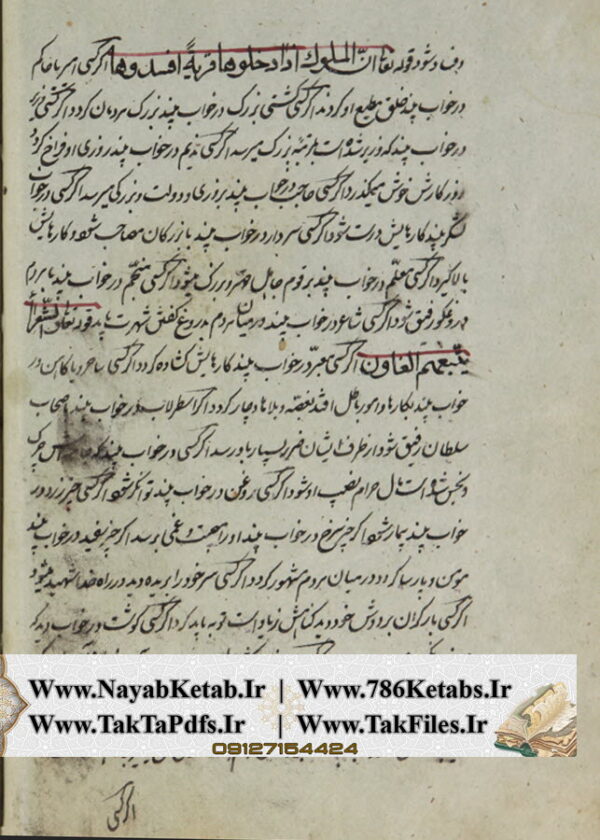 و فساد شود قوله تعالی انّ الملوك اذا دخلوها قریةً افسدوها اگر کسی امیر یا حاکم
در خواب بیند خلق مطیع او کردند اگر کسی کشتی بزرک در خواب بیند بزرک مردمان کردد اگر کسی وزیر
در خواب بیند که وزیر شده است بمرتبه بزرک میرسد اگر کسی ندیم در خواب بیند روزی او فراخ کردد
روزکارش خوش میکذرد اگر کسی حاجب در خواب بیند بروزی و دولت و بزرکی میرسد اگر کسی در خواب
لشکر بیند کارهایش درست شود اگر کسی سردار در خواب بیند با بزرکان مصاحب شود و کارهایش
بالا کیرد اگر کسی معلّم در خواب بیند بر قوم جاهل مهتر و بزرک میشود اگر کسی منجّم در خواب بیند با مردم
دروغکو رفیق شود اگر کسی شاعر در خواب بیند در میان مردم بدروغ کفتن شهرت یابد قوله تعالی و الشّعرآء
یتّبعهم الغاون اگر کسی معبّر در خواب بیند کارهایش کشاده کردد اگر کسی ساحر و یا کاهن در
خواب بیند بکارها و امور باطل افتد بغصه و بلاها دچار کردد اگر اسطرلاب در خواب بیند با صحاب
سلطان رفیق شود از طرف ایشان ضرر بسیار باو رسد اگر کسی در خواب بیند که لباس چرک
و نجس شده است مال حرام نصیب او شود اگر کسی روغن در خواب بیند توانکر شود اگر کسی چیز زرد در
خواب بیند بیمار شود اگر چیز سرخ در خواب بیند او را بهجت و غمی برسد اگر چیز سفید در خواب بیند
مؤمن و پارسا کردد در میان مردم مشهور کردد اگر کسی سر خود را بریده دید در راه خدا شهید میشود
اگر کسی بار کران بر دوش خود دید کناهش زیاد است توبه باید کرد اگر کسی کوشت در خواب دید که
Www.NayabKetab.Ir | Www.786Ketabs.Ir
Www.TakTaPdfs.Ir | Www.TakFiles.Ir
09127154424
اگر کسی